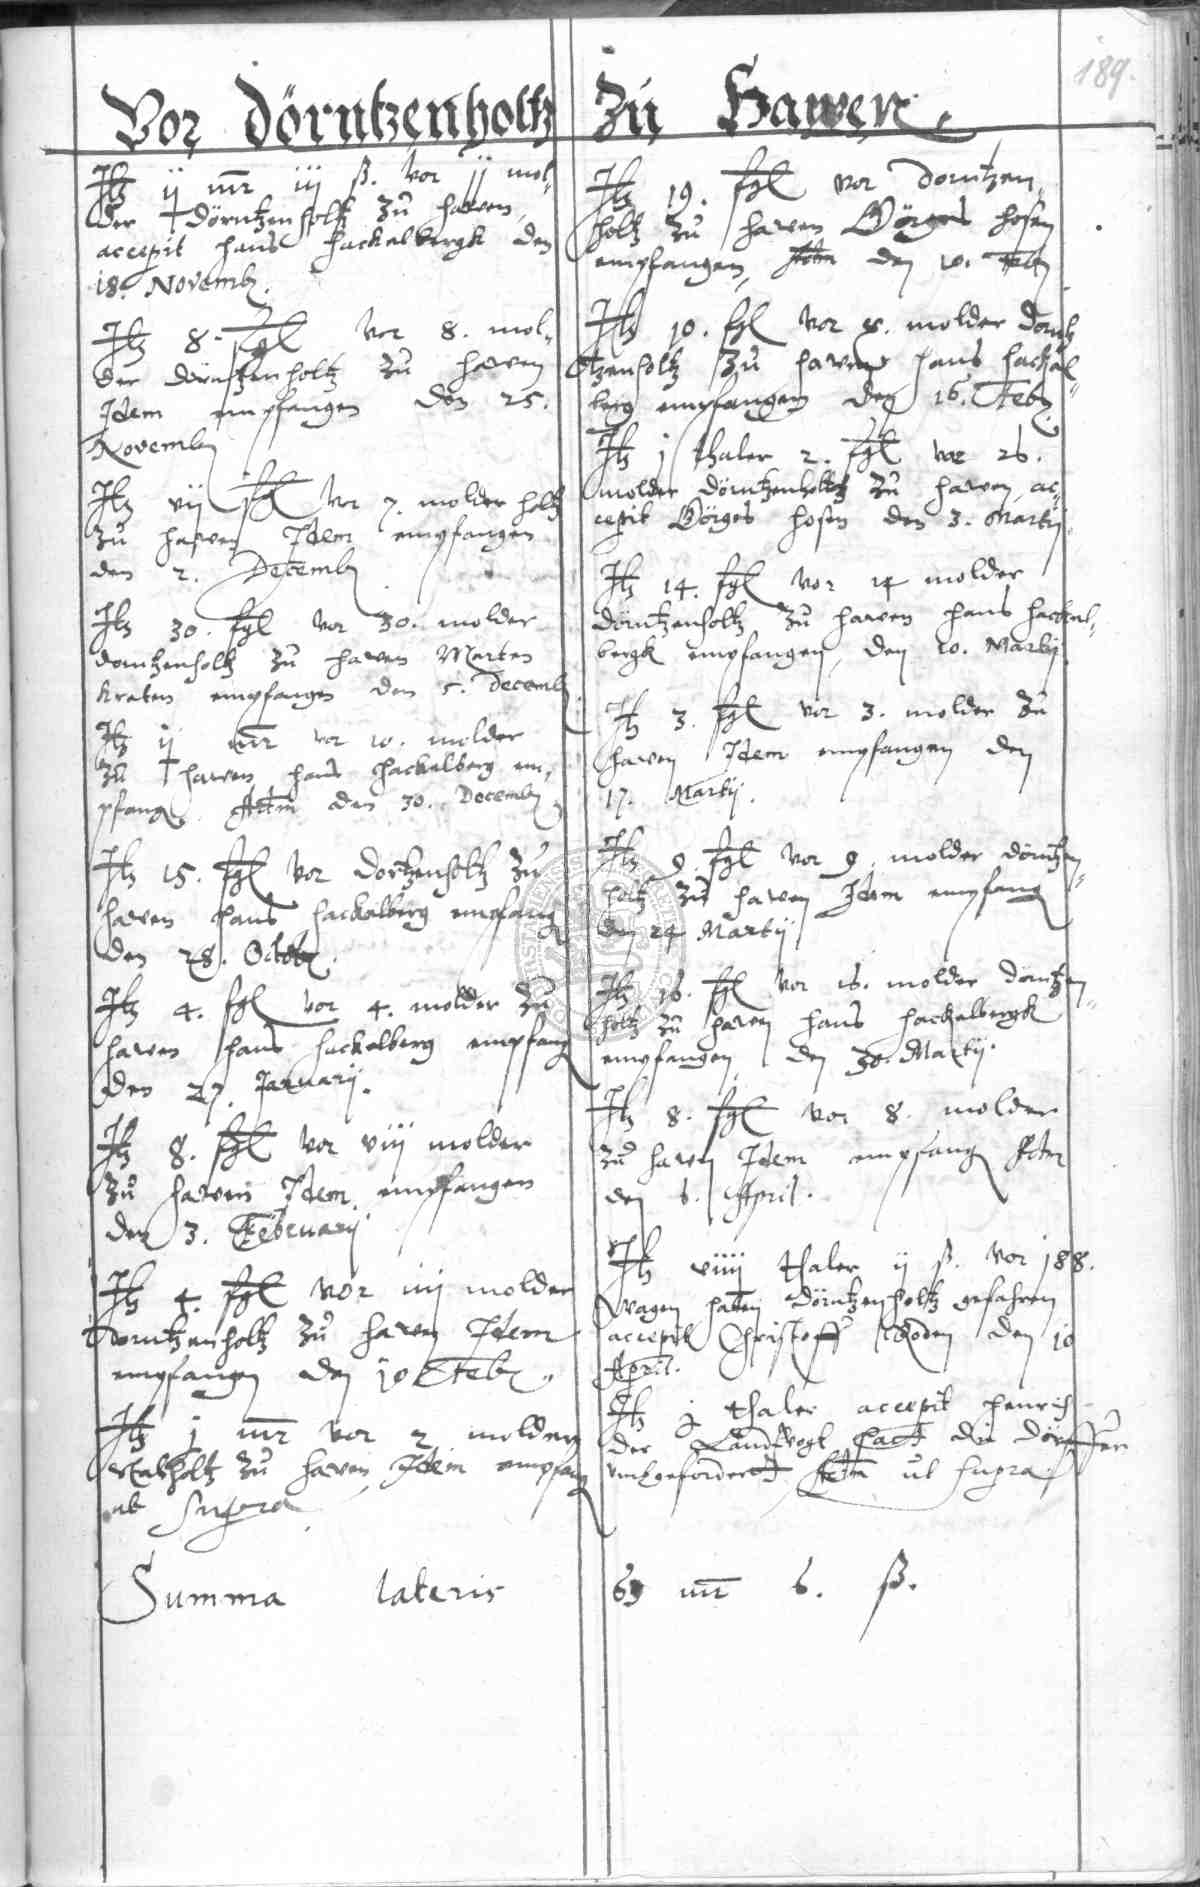 189.
Vor Dörntzenholtz Zu Hawen.
Itz ij mr iij ß. vor ij mol-
der Dörntzenholtz Zu hawen,
accepit hans hackelbergk den
18. Novemb.
Itz 8. fgl vor 8. mol-
der dörntzenholtz Zu hawen
Idem empfangen den 25.
Novemb
Itz vij fgl vor 7. molder holtz
Zu hawen Idem empfangen
den 2. Decemb
Itz 30. fgl vor 30. molder
dorntzenholtz Zu hawen Marten
kraten empfangen den 5. Decemb
Itz ij mr vor 10. molder
Zu hawen hans hackelberg em-
pfang den 30. Decemb
Itz 15. fgl vor dortzenholtz Zu
hawen hans hackelberg empfang
den 28. Octob
Itz 4. fgl vor 4. molder Zu
hawen hans hackelberg empfang
den 27. Januarij.
Itz 8. fgl vor viij molder
Zu hawen Idem empfangen
den 3. Februarij
Itz 4. fgl vor iiij molder
Dorntzenholtz Zu hawen Idem
empfangen den 10 Feb.
Itz j mr vor 2 molder
Zu hawen Idem empfang
ut supra
Itz 19. fgl vor Dorntzen-
holtz Zu hawen Görges hosen
empfangen, den 10. Feb
Itz 10. fgl vor molder Dornt
tzenholtz Zu hawen hans hackel-
berg empfangen den 16. Feb
Itz j thaler 2. fgl vor 26.
molder dörntzenholtz Zu hawen ac-
cepit Görges hosen den 3. Martij
Itz 14. fgl vor 14 molder
dörntzenholtz Zu hawen hans hackel-
bergk empfangen, den 10. Martij
Itz 3. fgl vor 3. molder Zu
hawen Idem empfangen den
17. Martij.
Itz 9. fgl vor 9. molder dörntzen-
holtz Zu hawen Idem empfang
den 24 Martij
Itz 16. fgl vor 16. molder dörntzen-
holtz Zu hawen hans hackelbergk
empfangen den 30. Martij.
Itz 8. fgl vor 8. molder
Zu hawen Idem empfang
den 6. April.
Itz viiij thaler ij ß. vor 188.
wagen Dörntzenholtz gefahren
accepit Christoff Roden den 10
April.
Itz j thaler accepit henrich
der Landtvogt hatt die Dörffer
ut supra
Summa lateris 69 mr 6. ß.